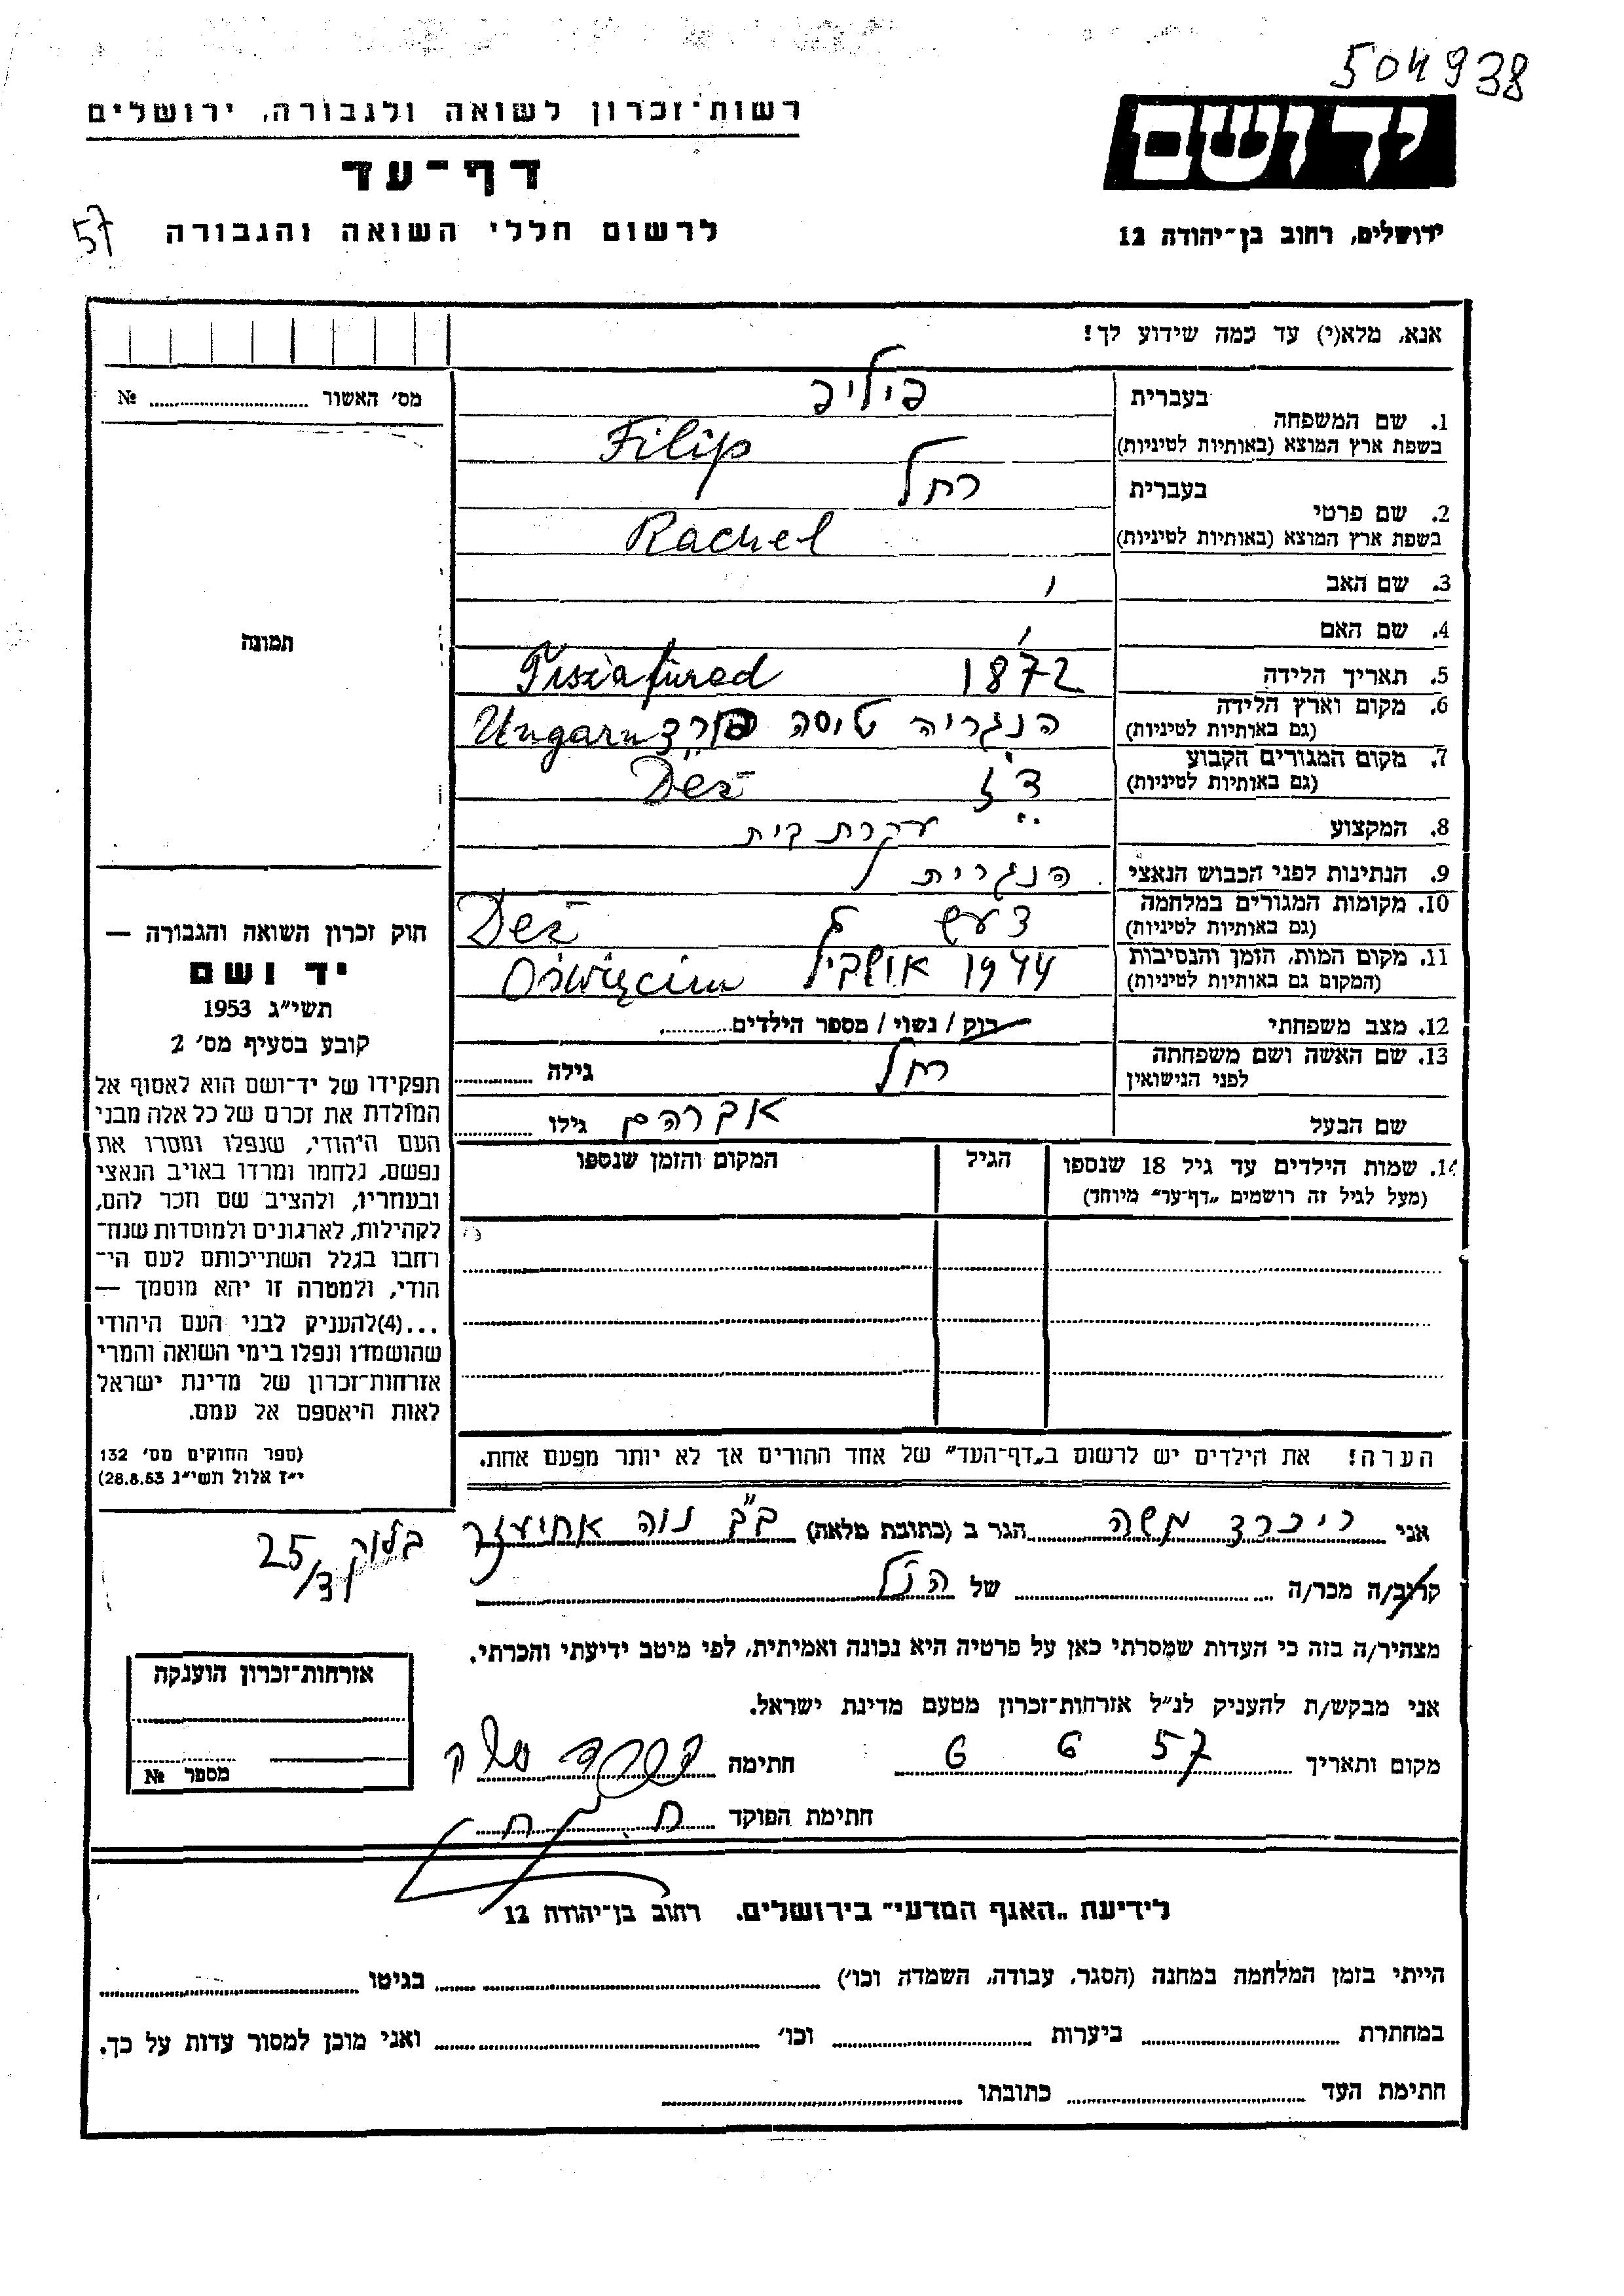 504938
רשות־זכרון לשואה ולגבורה, ירושלים
יד ושם
דף־עד
ירושלים, רחוב בן־יהודה 12
לרשום חללי השואה והגבורה
57
אנא, מלא(י) עד כמה שידוע לך!
מס׳ האשור ........ №
בעברית
פיליפ
1. שם המשפחה
בשפת ארץ המוצא (באותיות לטיניות)
Filip
בעברית
רחל
2. שם פרטי
בשפת ארץ המוצא (באותיות לטיניות)
Rachel
3. שם האב
4. שם האם
תמונה
5. תאריך הלידה 1872 Tiszafüred
6. מקום וארץ הלידה הנגריה טיסה פורד Ungarn
(גם באותיות לטיניות)
7. מקום המגורים הקבוע דז Dez
(גם באותיות לטיניות)
8. המקצוע עקרת בית
9. הנתינות לפני הכבוש הנאצי הנגרית
10. מקומות המגורים במלחמה Dez
(גם באותיות לטיניות)
11. מקום המות, הזמן והנסיבות 1944 Oświęcim
(המקום גם באותיות לטיניות)
12. מצב משפחתי רוק / נשוי / מספר הילדים........
13. שם האשה ושם משפחתה
לפני הנישואין
רחל גילה ........
שם הבעל אברהם גילו ........
14. שמות הילדים עד גיל 18 שנספו
(מעל לגיל זה רושמים „דף־עד״ מיוחד)
הגיל
המקום והזמן שנספו
הערה! את הילדים יש לרשום ב„דף־העד״ של אחד ההורים אך לא יותר מפעם אחת.
חוק זכרון השואה והגבורה —
יד ושם
תשי״ג 1953
קובע בסעיף מס׳ 2
תפקידו של יד־ושם הוא לאסוף אל
המולדת את זכרם של כל אלה מבני
העם היהודי, שנפלו ומסרו את
נפשם, נלחמו ומרדו באויב הנאצי
ובעוזריו, ולהציב שם וזכר להם,
לקהילות, לארגונים ולמוסדות שנח־
רחבו בגלל השתייכותם לעם הי־
הודי, ולמטרה זו יהא מוסמך —
...(4)להעניק לבני העם היהודי
שהושמדו ונפלו בימי השואה והמרי
אזרחות־זכרון של מדינת ישראל
לאות היאספם אל עמם.
(ספר החוקים מס׳ 132
י״ז אלול תשי״ג 28.8.53)
אני משה הגר ב (כתובת מלאה) ב״ב נוה אחיעזר
בלוק 25/3
קרוב/ה מכר/ה ........ של הנ״ל
מצהיר/ה בזה כי העדות שמסרתי כאן על פרטיה היא נכונה ואמיתית, לפי מיטב ידיעתי והכרתי.
אני מבקש/ת להעניק לנ״ל אזרחות־זכרון מטעם מדינת ישראל.
מקום ותאריך 6 6 57 חתימה
חתימת הפוקד
אזרחות־זכרון הוענקה
מספר №
לידיעת „האגף המדעי״ בירושלים, רחוב בן־יהודה 12
הייתי בזמן המלחמה במחנה (הסגר, עבודה, השמדה וכו׳) ........ בגיטו ........
במחתרת ........ ביערות ........ וכו׳ ........ ואני מוכן למסור עדות על כך.
חתימת העד ........ כתובתו ........